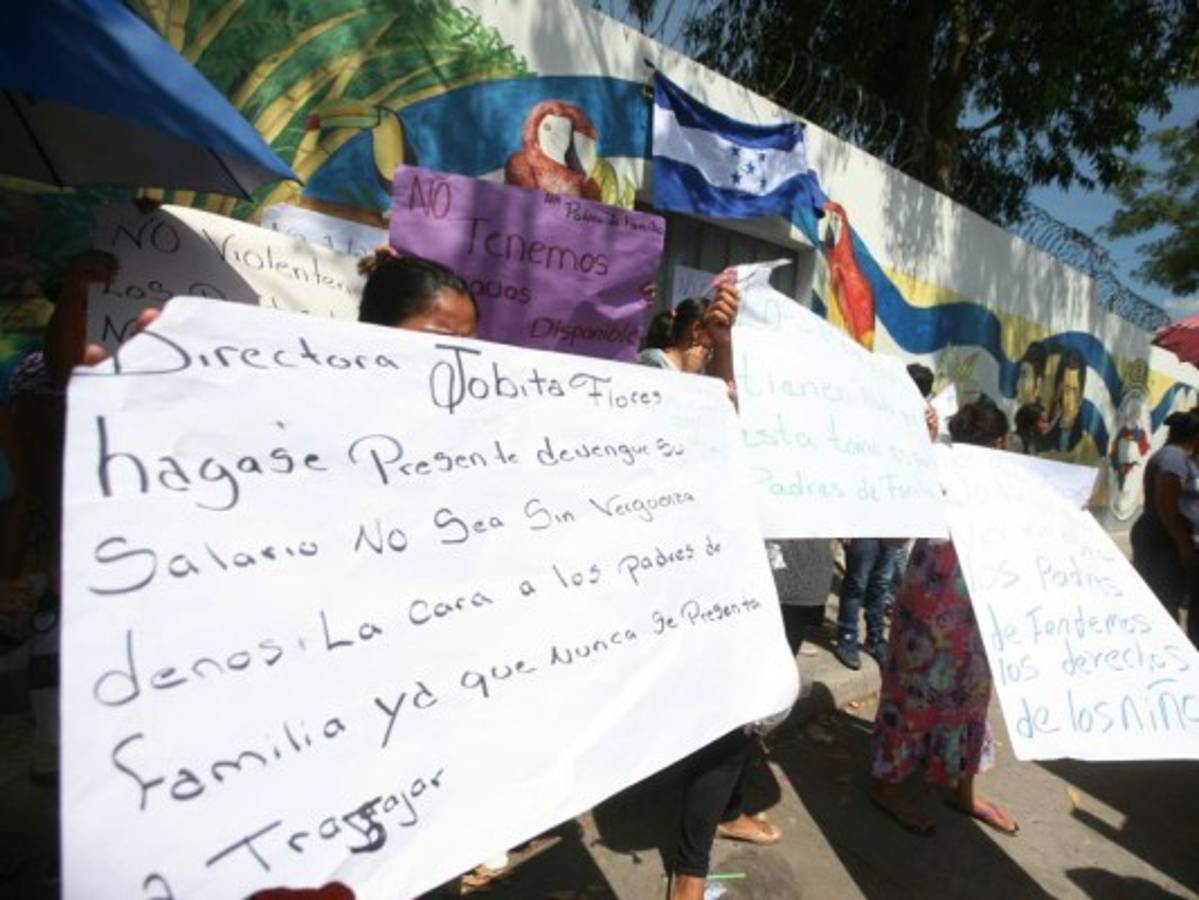 NO Violenten
Los
NO
NO
Padres de Familia
Tenemos
Disponible
Directora Jobita Flores
hagase Presente devengue su
Salario No Sea Sin Verguenza
denos La Cara a los padres de
familia ya que Nunca se Presenta
a Trabajar
tienen
esta toma
Padres de Familia
los Padres
defendemos
los derechos
de los Niño